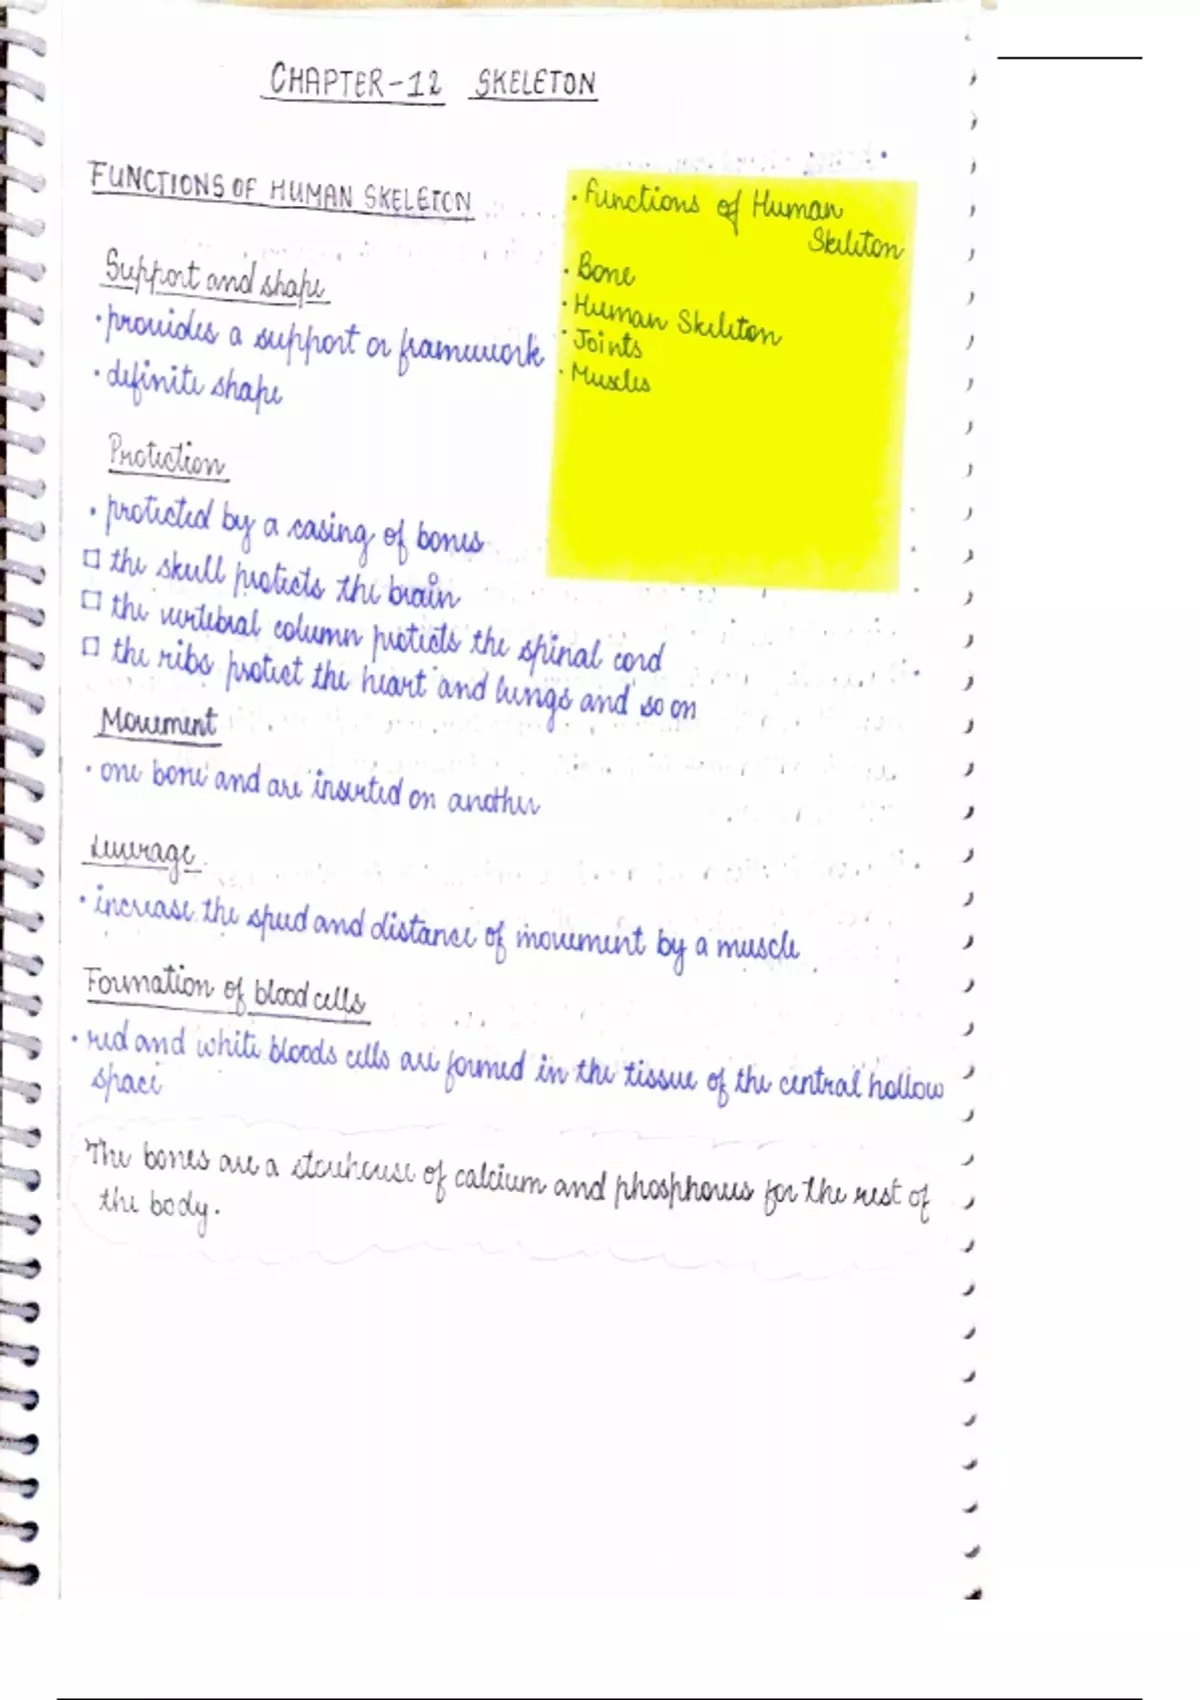 CHAPTER-12 SKELETON
FUNCTIONS OF HUMAN SKELETON
Support and shape
• provides a support or framework
• definite shape
Protection
• protected by a casing of bones
□ the skull protects the brain
□ the vertebral column protects the spinal cord
□ the ribs protect the heart and lungs and so on
Movement
• one bone and are inserted on another
Leverage
• increase the speed and distance of movement by a muscle
Formation of blood cells
• red and white bloods cells are formed in the tissue of the central hollow
space
The bones are a storehouse of calcium and phosphorus for the rest of
the body.
• Functions of Human
Skeleton
• Bone
• Human Skeleton
• Joints
• Muscles